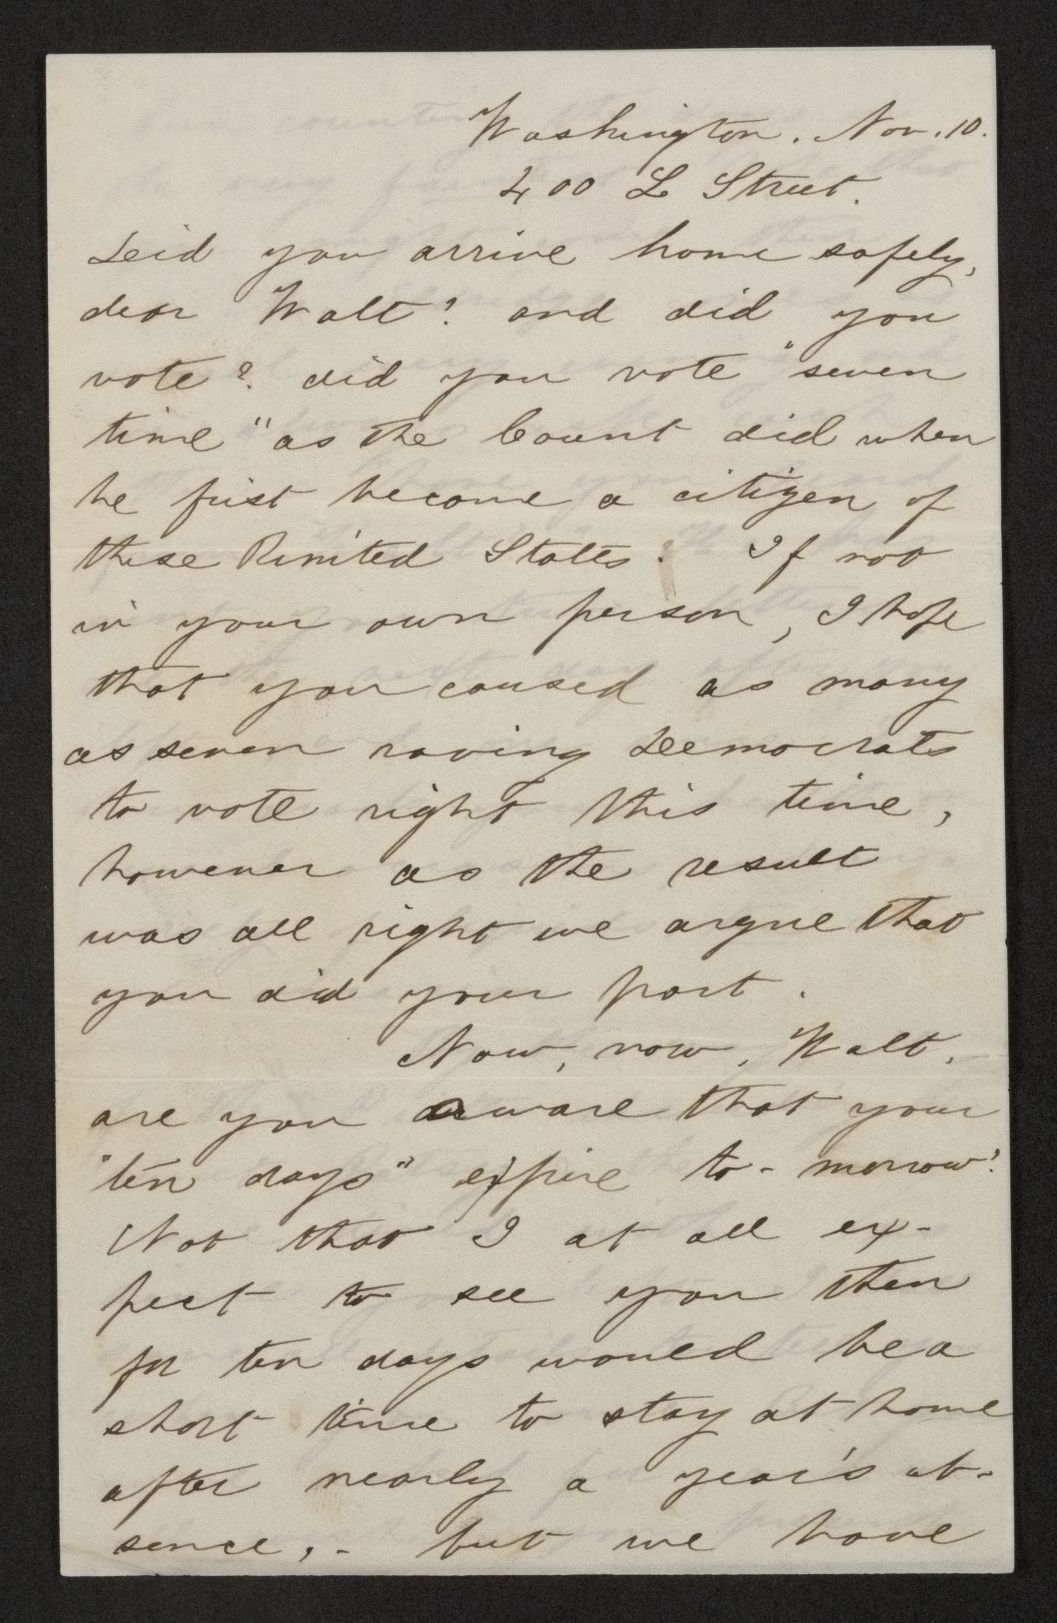 Washington. Nov. 10.
400 L Street.
Did you arrive home safely,
dear Walt? and did you
vote? did you vote "seven
time" as the Count did when
he first become a citizen of
these Runited States? If not
in your own person, I hope
that you caused as many
as seven raving Democrats
to vote right this time,
however as the result
was all right we argue that
you did your part.
Now, now, Walt,
are you aware that your
"ten days" expire to-morrow?
Not that I at all ex-
pect to see you then
for ten days would be a
short time to stay at home
after nearly a year's ab-
sence,- but we have